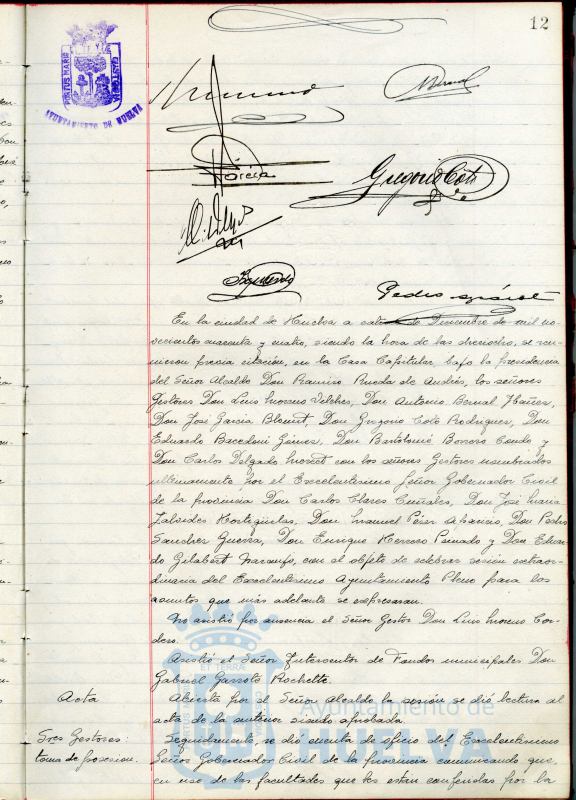 12
PORTUS MARIS
CUSTODIA
AYUNTAMIENTO DE HUELVA
García
Gregorio Coto
Izquierdo
Pedro
En la ciudad de Huelva a catorce de Diciembre de mil no-
vecientos cuarenta y cuatro, siendo la hora de las dieciocho, se reu-
nieron previa citación, en la Casa Capitular bajo la Presidencia
del Señor Alcalde Don Ramiro Rueda de Andrés, los señores
Gestores Don Luis Moreno Vilches, Don Antonio Bernal Ibáñez,
Don José García Don Gregorio Coto Rodríguez, Don
Eduardo Bacedoni Gómez, Don Bartolomé Borrero Conde y
Don Carlos Delgado con los señores Gestores nombrados
ultimamente por el Excelentísimo Señor Gobernador Civil
de la provincia Don Carlos Clares Don José María
Don Manuel Pérez Don Pedro
Sanchez Guerra, Don Enrique Herrero Peinado y Don Eduar-
do Gilabert Naranjo, con el objeto de celebrar sesión extraor-
dinaria del Excelentísimo Ayuntamiento Pleno para los
asuntos que más adelante se expresaran.
No asistió por ausencia el Señor Gestor Don Luis Moreno Cor-
dero.
Asistió el Señor Interventor de Fondos municipales Don
Gabriel Garrote Rochette.
Acta
Abierta por el Señor Alcalde la sesión se dió lectura al
acta de la anterior siendo aprobada.
Tres Gestores:
toma de posesion.
Seguidamente, se dió cuenta de oficio del Excelentísimo
Señor Gobernador Civil de la provincia comunicando que
en uso de las facultades que les estan conferidas por la
Ayuntamiento de
HUELVA